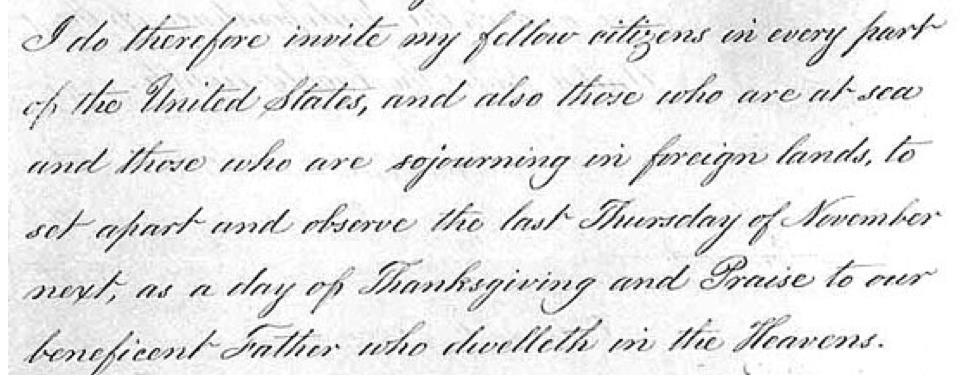 I do therefore invite my fellow citizens in every part
of the United States, and also those who are at sea
and those who are sojourning in foreign lands, to
set apart and observe the last Thursday of November
next, as a day of Thanksgiving and Praise to our
beneficent Father who dwelleth in the Heavens.